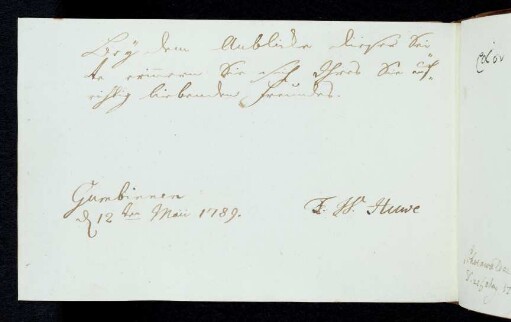 Bey dem Anblicke dieser Sei-
te erinnern Sie sich Ihres Sie auf-
richtig liebenden Freundes.
Gumbinnen
d 12 ten Mai 1789.
F. W. Huwe